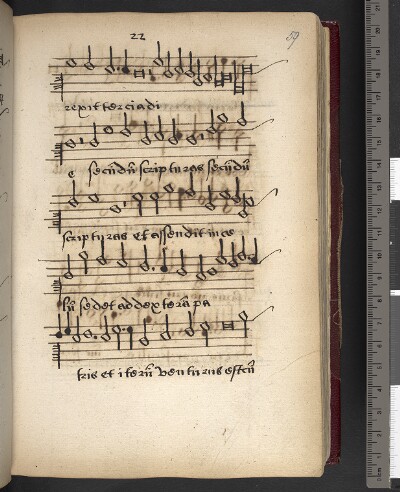 22
59
rexit tercia di
e secūdū scripturas secūdū
scripturas et assendit in ce
lū sedet ad dexterā pa
tris et iterū venturus est cū